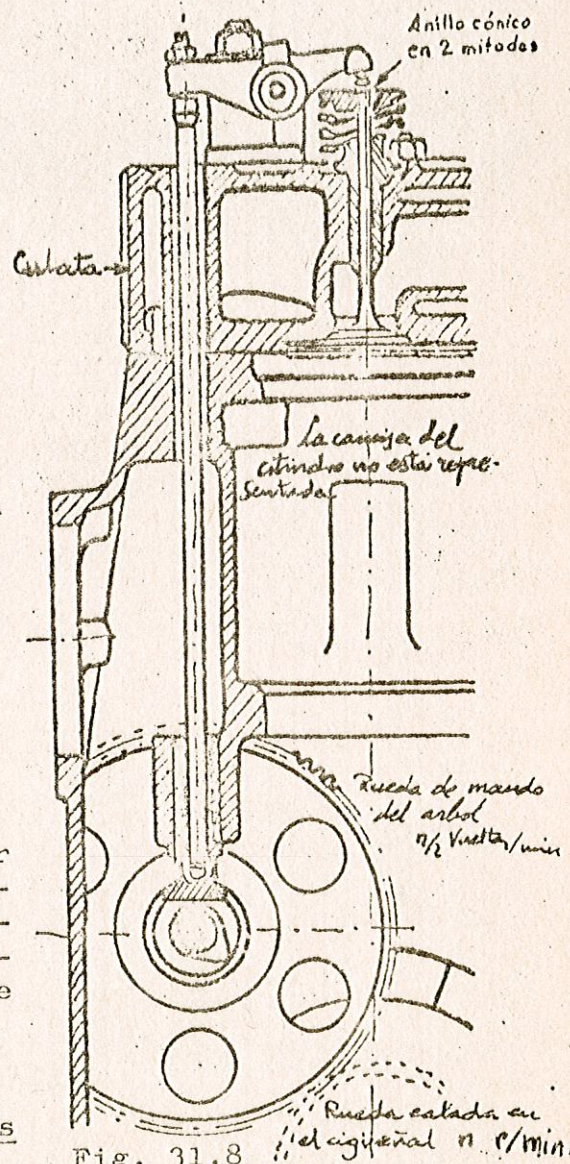 Anillo cónico
en 2 mitades
Culata
La camisa del
cilindro no está repre-
sentada
Rueda de mando
del arbol
n/2 Vueltas/min
Rueda calada en
el cigueñal n r/min.
Fig. 31.8